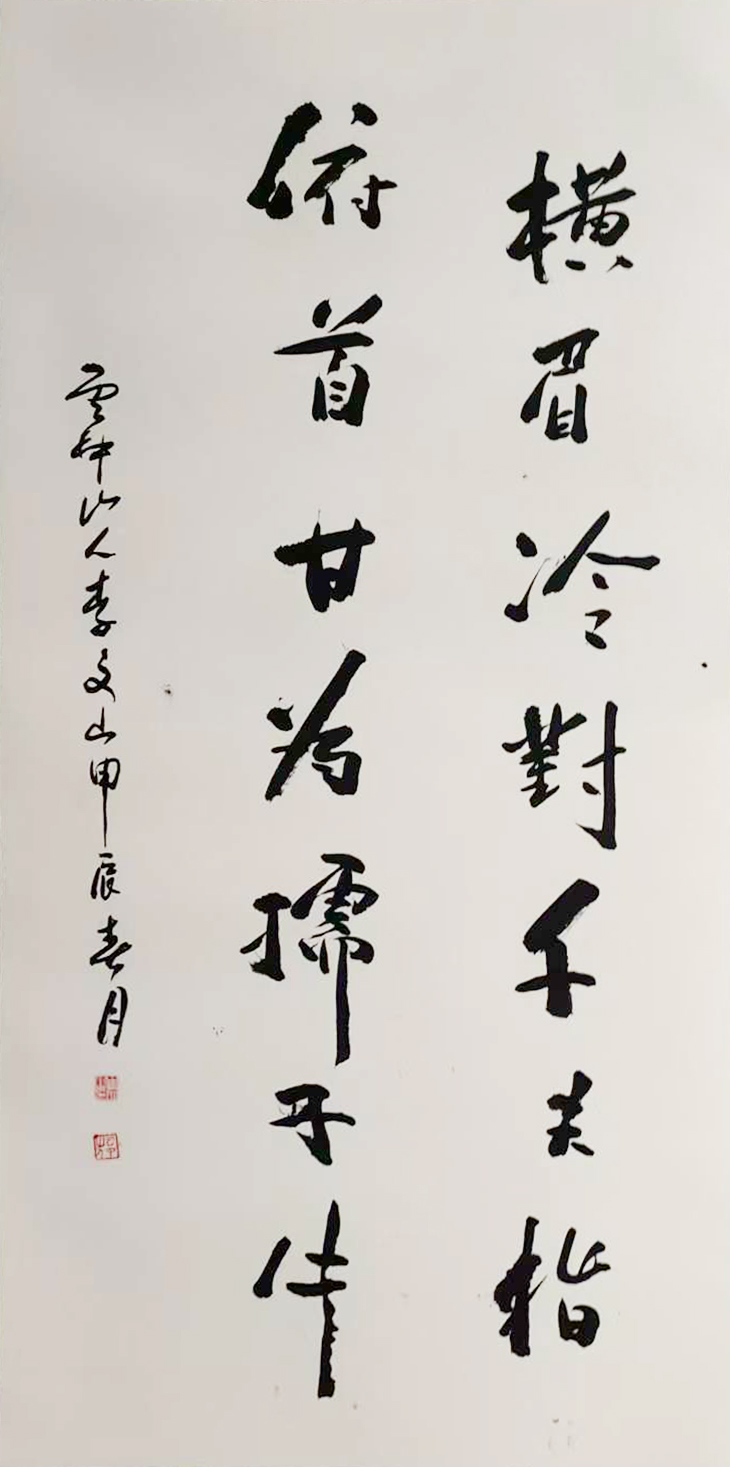 橫眉冷對千夫指
俯首甘為孺子牛
雲山人李文山甲辰春月